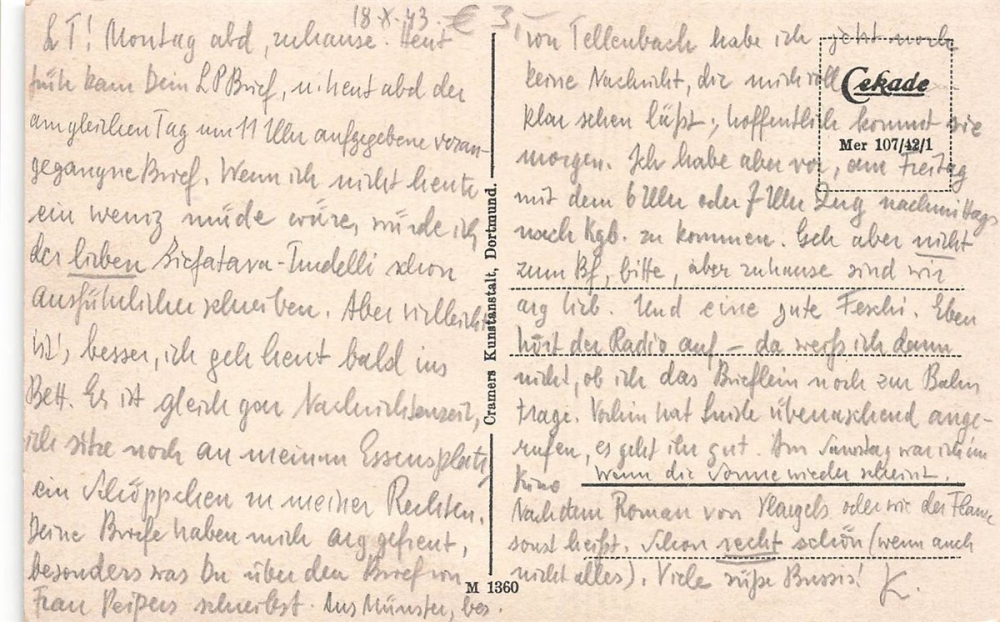 18.X.43. € 3,-
L T! Montag abd, zuhause. Heut
früh kam Dein L P Brief, u. heut abd der
am gleichen Tag um 11 Uhr aufgegebene voran-
gegangne Brief. Wenn ich nicht heute
ein wenig müde wäre, würde ich
der lieben schon
ausführlicher schreiben. Aber vielleicht
ist's besser, ich geh heut bald ins
Bett. Es ist gleich gar Nachrichtenzeit,
ich sitze noch an meinem Essensplatz,
ein Schöppchen zu meiner Rechten.
Deine Briefe haben mich arg gefreut,
besonders was Du über den Brief von
Frau Peipers schreibst. Aus Münster, bes.
Cramers Kunstanstalt, Dortmund.
M 1360
von Tellenbach habe ich jetzt noch
keine Nachricht, die mich voll
klar sehen läßt, hoffentlich kommt sie
morgen. Ich habe aber vor, am Freitag
mit dem 6 Uhr oder 7 Uhr Zug nachmittags
nach Kgb. zu kommen. Geh aber nicht
zum Bf, bitte, aber zuhause sind wir
arg lieb. Und eine gute Feschi. Eben
hört der Radio auf – da weiß ich dann
nicht, ob ich das Brieflein noch zur Bahn
trage. Vorhin hat überraschend ange-
rufen, es geht ihr gut. Am Samstag war ich im
Kino wenn die Sonne wieder scheint
Nach dem Roman von oder wie der Flame
sonst heißt. Schon recht schön (wenn auch
nicht alles). Viele süße Bussis! K.
Cekade
Mer 107/42/1